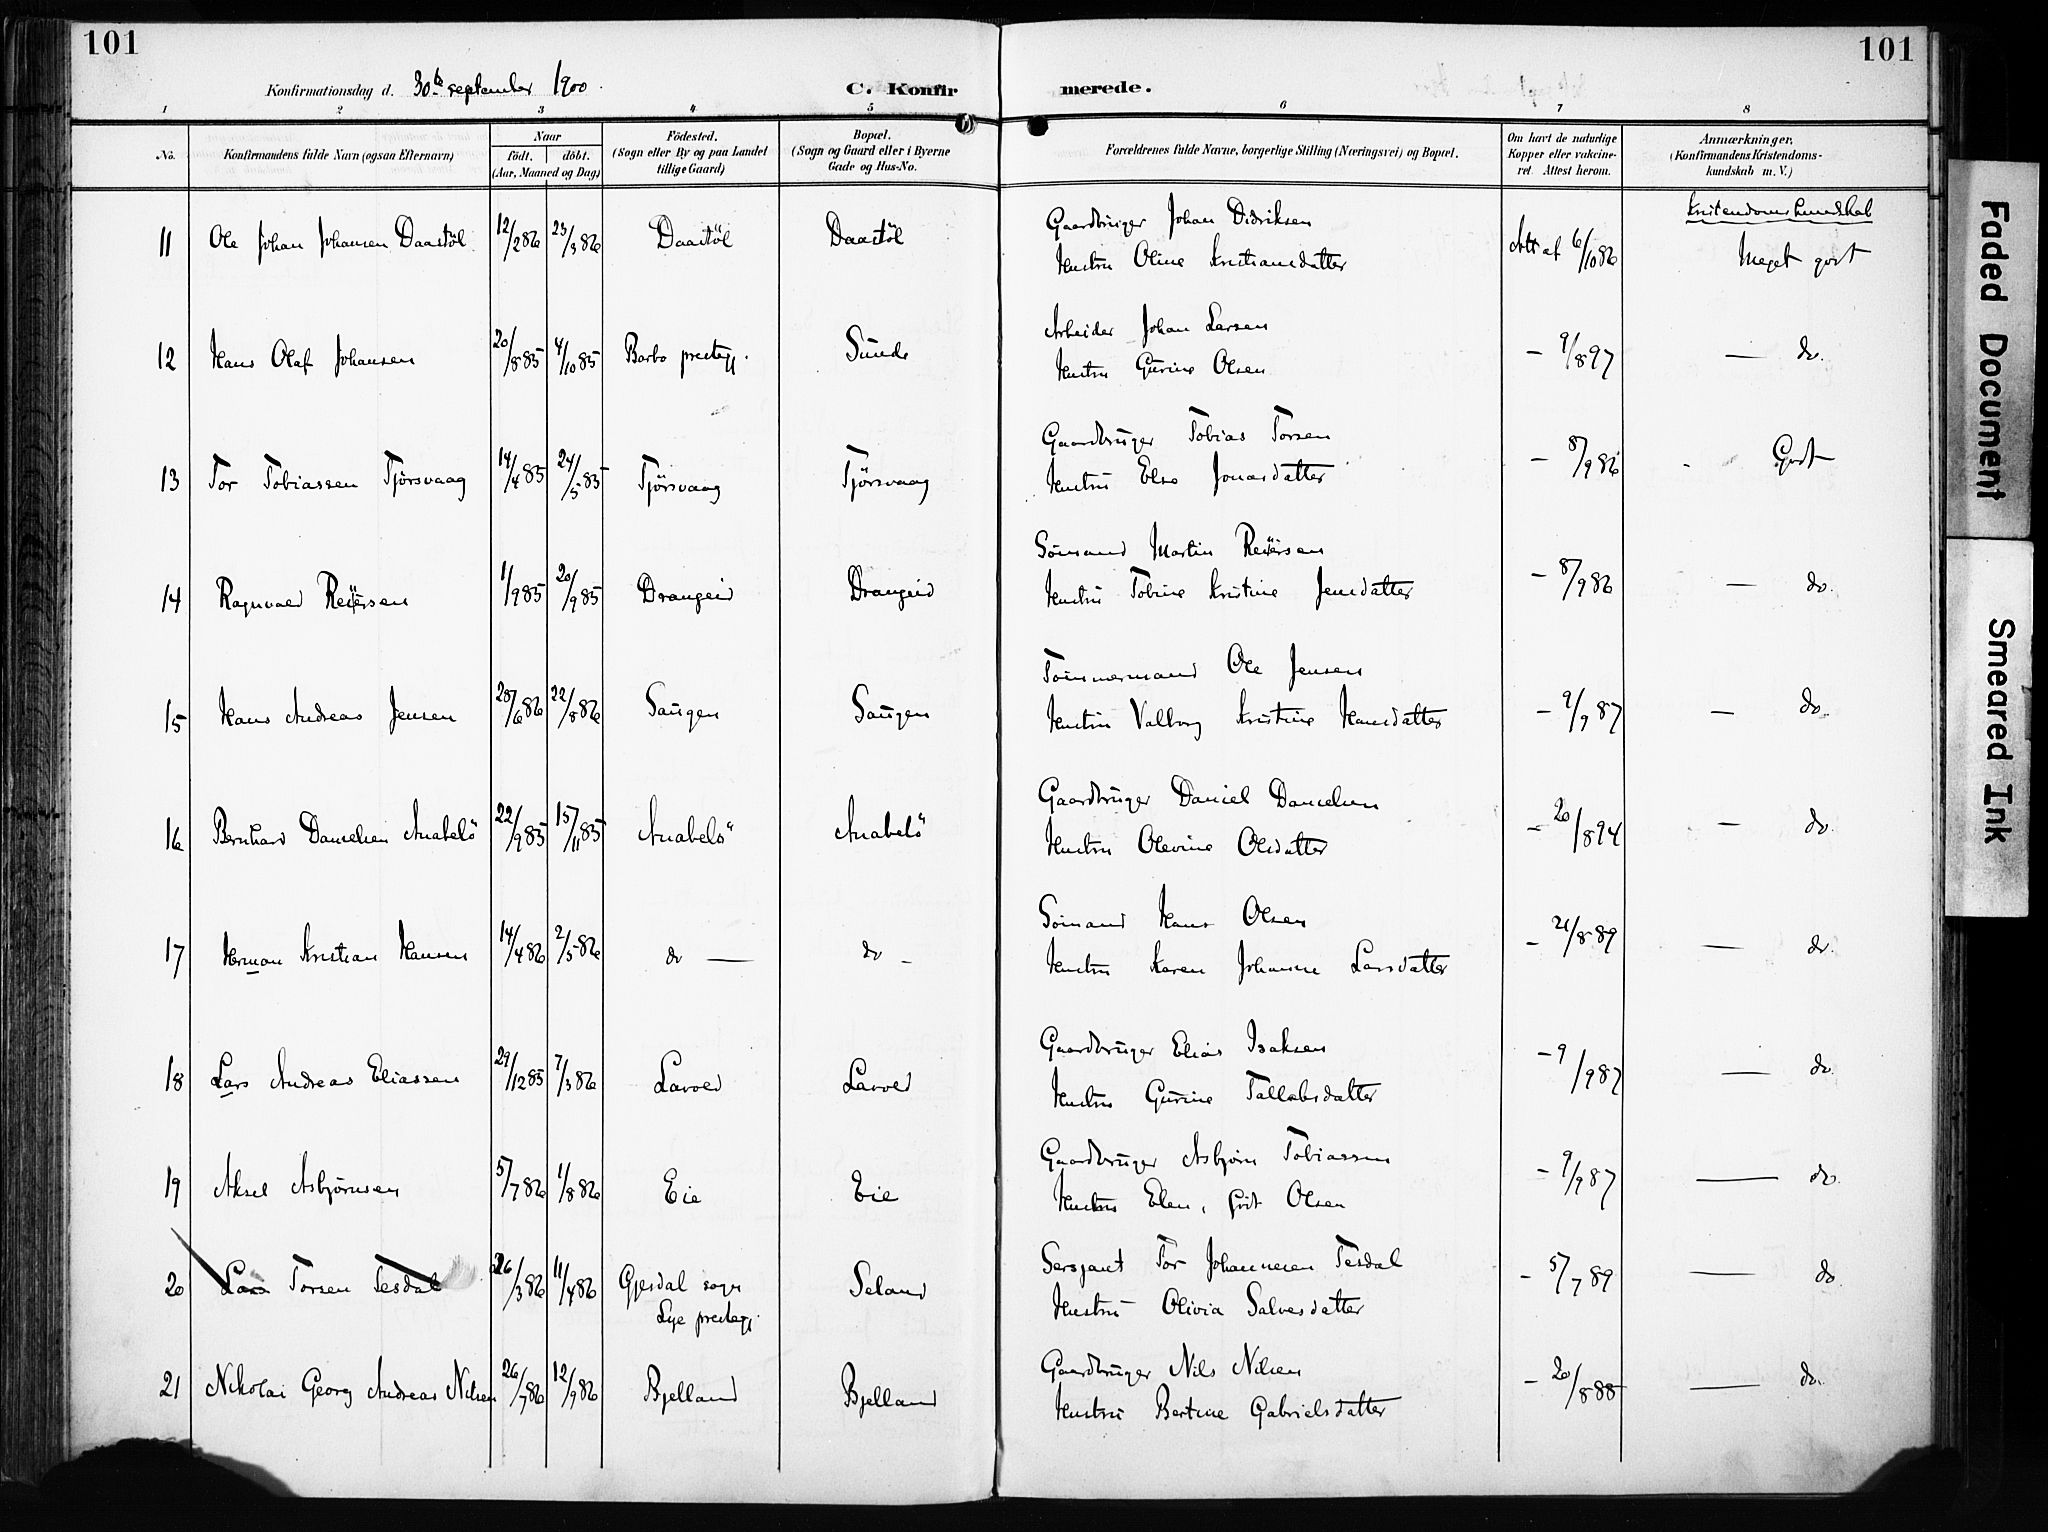 101
101
Konfirmationsdag d. 30te september 1900.
C. Konfirmerede.
1 2 3 4 5 6 7 8
No.
Konfirmandens fulde Navn (ogsaa Efternavn)
Naar
födt. döbt.
(Aar, Maaned og Dag)
Födested.
(Sogn eller By og paa Landet
tillige Gaard)
Bopæl.
(Sogn og Gaard eller i Byerne
Gade og Hus-No.
Forældrenes fulde Navne, borgerlige Stilling (Næringsvei) og Bopæl.
Om havt de naturlige
Kopper eller vakcine-
ret. Attest herom.
Anmærkninger.
(Konfirmandens Kristendoms-
kundskab m. V.)
Kristendomskundskab
11 Ole Johan Johansen Daastöl 12/2 86 23/3 86 Daastöl Daastöl Gaardbruger Johan Didriksen
Hustru Oline Kristiansdatter Att af 6/10 86 Meget godt
12 Hans Olaf Johansen 20/8 85 4/10 85 Barbo prestegj. Sunde Arbeider Johan Larsen
Hustru Gurine Olsen – 9/8 97 — do.
13 Tor Tobiassen Tjörsvaag 14/4 85 24/5 85 Tjörsvaag Tjörsvaag Gaardbruger Tobias Torsen
Hustru Else Jonasdatter – 8/9 86 Godt
14 Ragnvald Reiersen 1/9 85 20/9 85 Drangeid Drangeid Sömand Martin Reiersen
Hustru Tobine Kristine Jensdatter – 8/9 86 — do.
15 Hans Andreas Jensen 28/6 86 22/8 86 Saugen Saugen Tömmermand Ole Jensen
Hustru Valborg Kristine Hansdatter – 9/9 87 — do.
16 Bernhard Danielsen Anabelö 22/9 85 15/11 85 Anabelö Anabelö Gaardbruger Daniel Danielsen
Hustru Olevine Olsdatter – 20/8 94 — do.
17 Herman Kristian Hansen 14/4 86 2/5 86 do — do – Sömand Hans Olsen
Hustru Karen Johanne Larsdatter – 21/8 89 — do.
18 Lars Andreas Eliassen 29/12 85 7/3 86 Lavold Lavold Gaardbruger Elias Isaksen
Hustru Gurine Tallaksdatter – 9/9 87 — do.
19 Aksel Asbjörnsen 5/7 86 1/8 86 Eie Eie Gaardbruger Asbjörn Tobiassen
Hustru Elen, född Olsen – 9/9 87 — do.
20 Lars Torsen Tesdal 26/3 86 11/4 86 Gjesdal sogn
Lye prestegj. Seland Sersjant Tor Johannesen Tesdal
Hustru Olivia Salvesdatter – 5/7 89 — do
21 Nikolai Georg Andreas Nilsen 26/7 86 12/9 86 Bjelland Bjelland Gaardbruger Nils Nilsen
Hustru Bertine Gabrielsdatter – 20/8 88 — do.
Faded Document
Smeared Ink